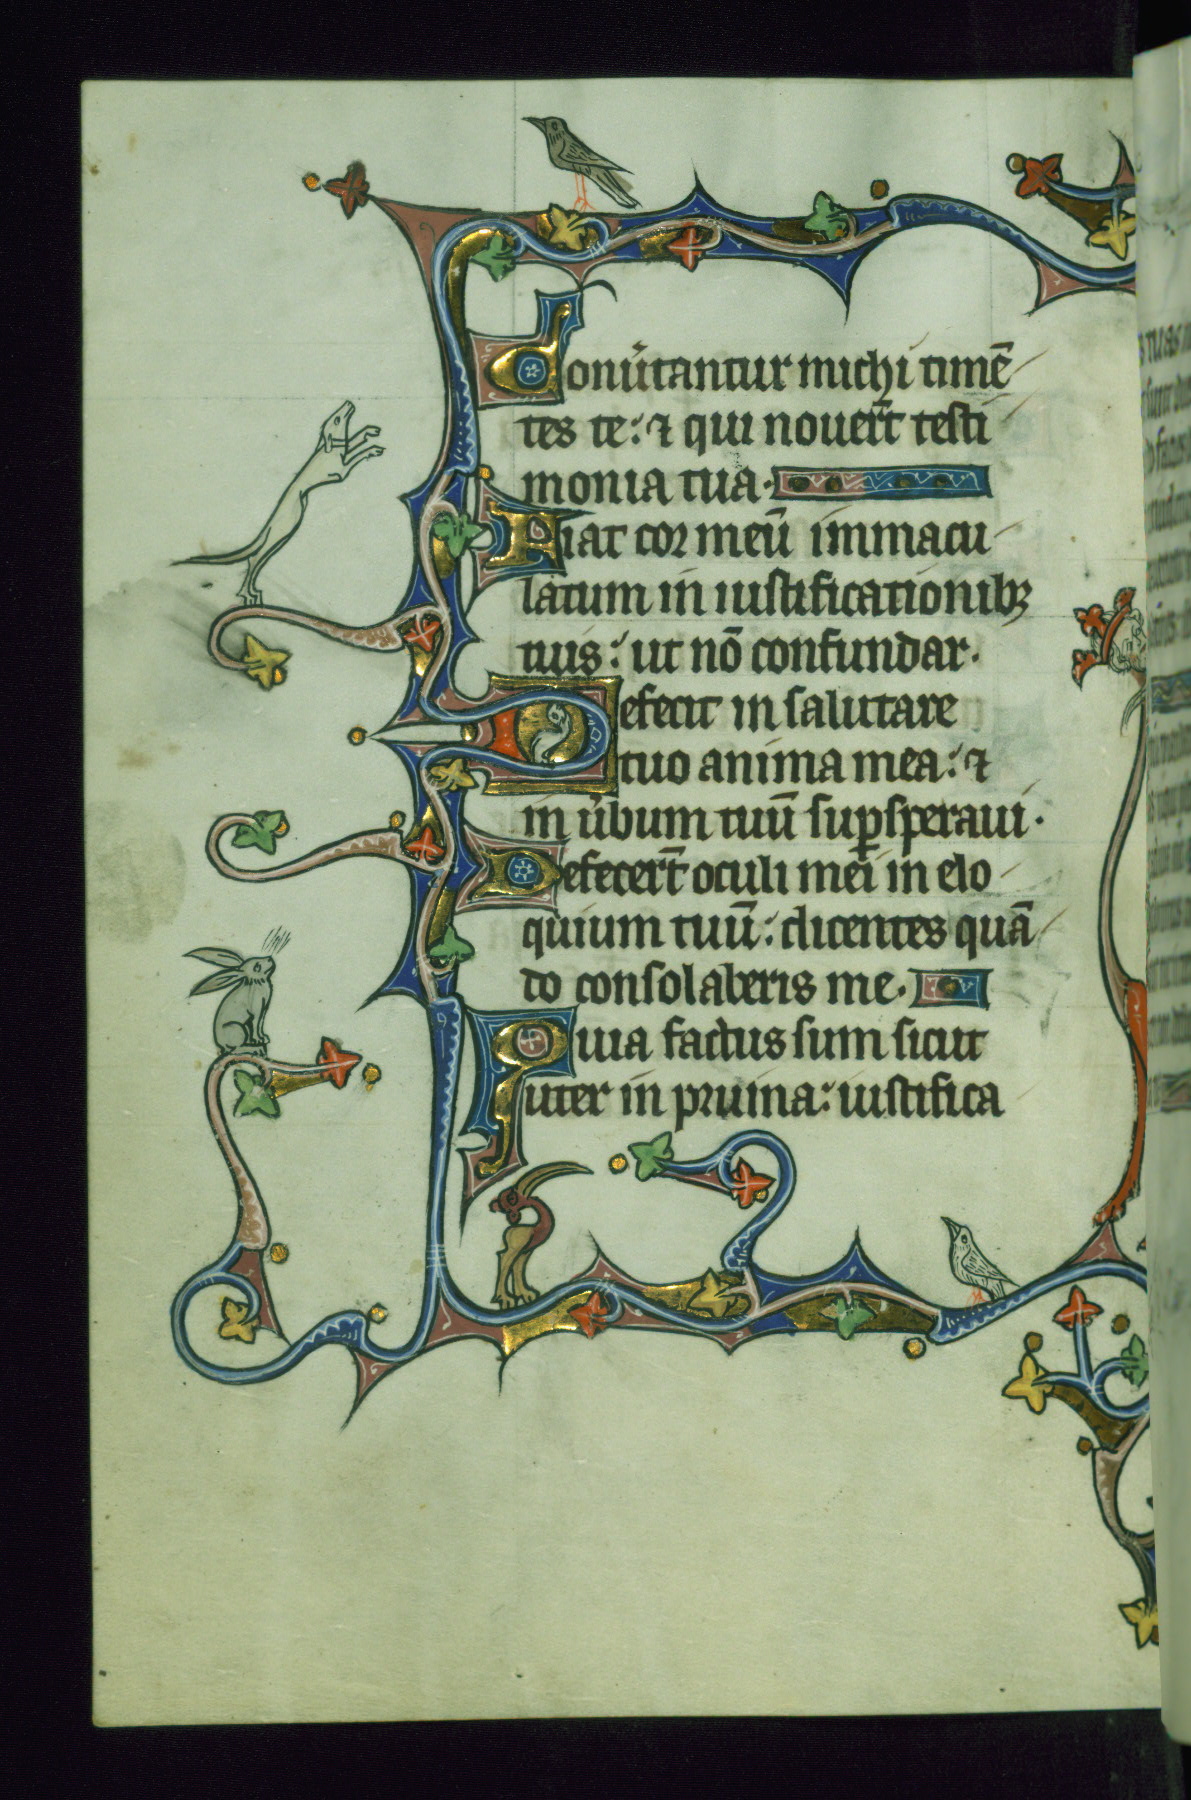 Conũtantur michi timē
tes te: ⁊ qui nouer̄t testi
monia tua.
Fiat cor meū immacu
latum in iustificationibꝫ
tuis: ut nō confundar.
Defecit in salutare
tuo anima mea: ⁊
in ũbum tuū suꝑsperaui.
Defecer̄t oculi mei in elo
quium tuū: dicentes quā
do consolaberis me.
Quia factus sum sicut
uter in pruina: iustifica